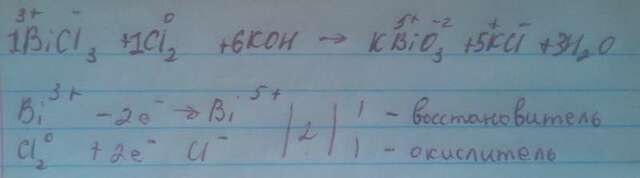 3+ - 0 5+ -2 + -
1BiCl3 + 1Cl2 + 6KOH → KBiO3 + 5KCl + 3H2O
Bi3+ - 2e- → Bi5+ | 2 | 1 - восстановитель
Cl20 + 2e- Cl- | 1 - окислитель